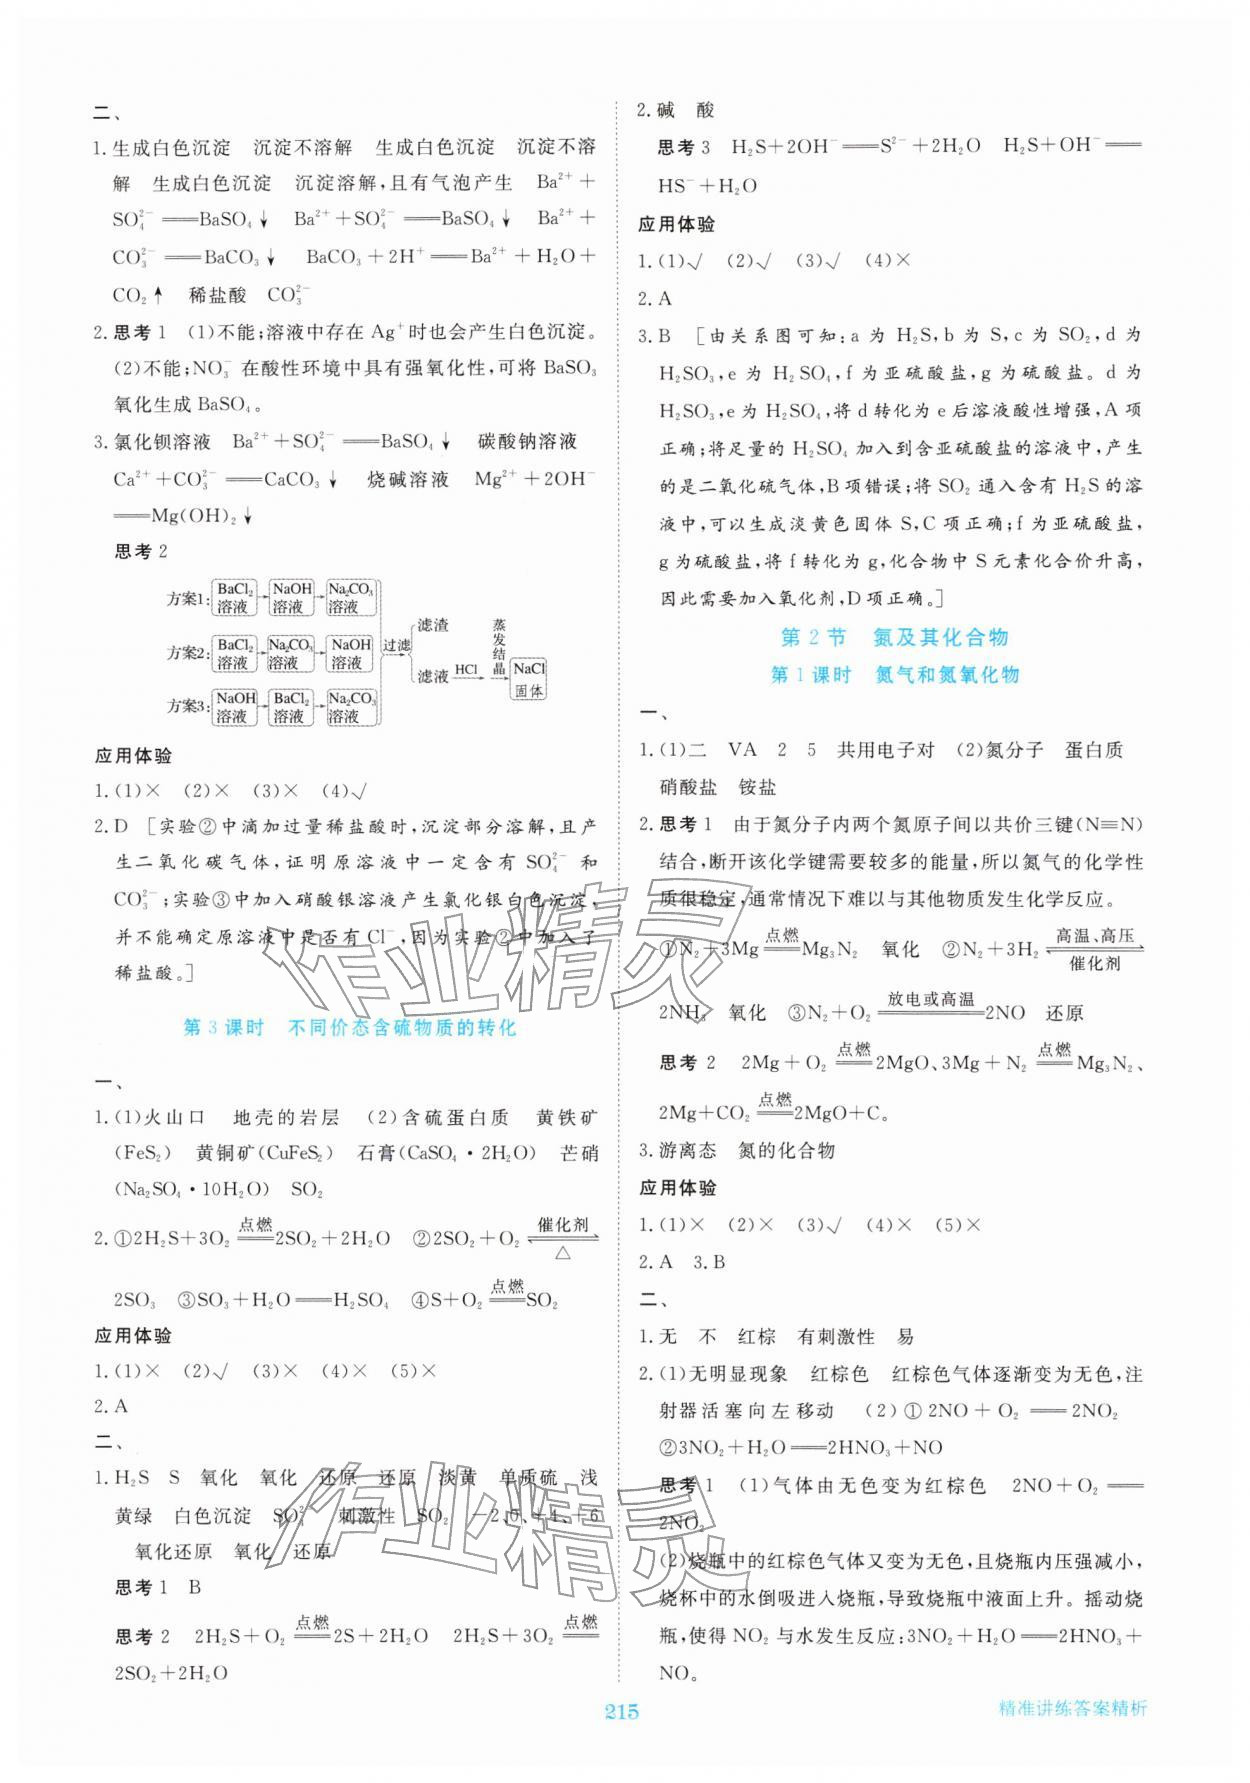 二、
1. 生成白色沉淀　沉淀不溶解　生成白色沉淀　沉淀不溶
解　生成白色沉淀　沉淀溶解,且有气泡产生　Ba²⁺ +
SO₄²⁻ ══BaSO₄↓　Ba²⁺ + SO₄²⁻ ══BaSO₄↓　Ba²⁺ +
CO₃²⁻ ══BaCO₃↓　BaCO₃ + 2H⁺ ══Ba²⁺ + H₂O +
CO₂↑　稀盐酸　CO₃²⁻
2. 思考1　(1)不能;溶液中存在 Ag⁺时也会产生白色沉淀。
(2)不能;NO₃⁻ 在酸性环境中具有强氧化性,可将 BaSO₃
氧化生成 BaSO₄。
3. 氯化钡溶液　Ba²⁺ + SO₄²⁻ ══BaSO₄↓　碳酸钠溶液
Ca²⁺ + CO₃²⁻ ══CaCO₃↓　烧碱溶液　Mg²⁺ + 2OH⁻
══Mg(OH)₂↓
思考2
方案1: BaCl₂溶液 → NaOH溶液 → Na₂CO₃溶液
方案2: BaCl₂溶液 → Na₂CO₃溶液 → NaOH溶液
方案3: NaOH溶液 → BaCl₂溶液 → Na₂CO₃溶液
过滤
滤渣
滤液 HCl 蒸发结晶 NaCl固体
应用体验
1. (1)×　(2)×　(3)×　(4)√
2. D　[实验②中滴加过量稀盐酸时,沉淀部分溶解,且产
生二氧化碳气体,证明原溶液中一定含有 SO₄²⁻ 和
CO₃²⁻;实验③中加入硝酸银溶液产生氯化银白色沉淀,
并不能确定原溶液中是否有 Cl⁻,因为实验②中加入了
稀盐酸。]
第3课时　不同价态含硫物质的转化
一、
1. (1)火山口　地壳的岩层　(2)含硫蛋白质　黄铁矿
(FeS₂)　黄铜矿(CuFeS₂)　石膏(CaSO₄・2H₂O)　芒硝
(Na₂SO₄・10H₂O)　SO₂
2. ①2H₂S+3O₂ 点燃══2SO₂+2H₂O　②2SO₂+O₂ 催化剂⇌△
2SO₃　③SO₃+H₂O══H₂SO₄　④S+O₂ 点燃══SO₂
应用体验
1. (1)×　(2)√　(3)×　(4)×　(5)×
2. A
二、
1. H₂S　S　氧化　氧化　还原　还原　淡黄　单质硫　浅
黄绿　白色沉淀　SO₄²⁻　刺激性　SO₂　-2、0、+4、+6
氧化还原　氧化　还原
思考1　B
思考2　2H₂S+O₂ 点燃══2S+2H₂O　2H₂S+3O₂ 点燃══
2SO₂+2H₂O
2. 碱　酸
思考3　H₂S+2OH⁻══S²⁻+2H₂O　H₂S+OH⁻══
HS⁻+H₂O
应用体验
1. (1)√　(2)√　(3)√　(4)×
2. A
3. B　[由关系图可知:a 为 H₂S,b 为 S,c 为 SO₂,d 为
H₂SO₃,e 为 H₂SO₄,f 为亚硫酸盐,g 为硫酸盐。d 为
H₂SO₃,e 为 H₂SO₄,将 d 转化为 e 后溶液酸性增强,A 项
正确;将足量的 H₂SO₄ 加入到含亚硫酸盐的溶液中,产生
的是二氧化硫气体,B 项错误;将 SO₂ 通入含有 H₂S 的溶
液中,可以生成淡黄色固体 S,C 项正确;f 为亚硫酸盐,
g 为硫酸盐,将 f 转化为 g,化合物中 S 元素化合价升高,
因此需要加入氧化剂,D 项正确。]
第2节　氮及其化合物
第1课时　氮气和氮氧化物
一、
1. (1)二　ⅤA　2　5　共用电子对　(2)氮分子　蛋白质
硝酸盐　铵盐
2. 思考1　由于氮分子内两个氮原子间以共价三键(N≡N)
结合,断开该化学键需要较多的能量,所以氮气的化学性
质很稳定,通常情况下难以与其他物质发生化学反应。
①N₂+3Mg 点燃══Mg₃N₂　氧化　②N₂+3H₂ 高温、高压⇌催化剂
2NH₃　氧化　③N₂+O₂ 放电或高温══2NO　还原
思考2　2Mg+O₂ 点燃══2MgO、3Mg+N₂ 点燃══Mg₃N₂、
2Mg+CO₂ 点燃══2MgO+C。
3. 游离态　氮的化合物
应用体验
1. (1)×　(2)×　(3)√　(4)×　(5)×
2. A　3. B
二、
1. 无　不　红棕　有刺激性　易
2. (1)无明显现象　红棕色　红棕色气体逐渐变为无色,注
射器活塞向左移动　(2)①2NO + O₂ ══2NO₂
②3NO₂+H₂O══2HNO₃+NO
思考1　(1)气体由无色变为红棕色　2NO+O₂══
2NO₂
(2)烧瓶中的红棕色气体又变为无色,且烧瓶内压强减小,
烧杯中的水倒吸进入烧瓶,导致烧瓶中液面上升。摇动烧
瓶,使得 NO₂ 与水发生反应:3NO₂+H₂O══2HNO₃+
NO。
215
精准讲练答案精析
作业精灵
作业精灵